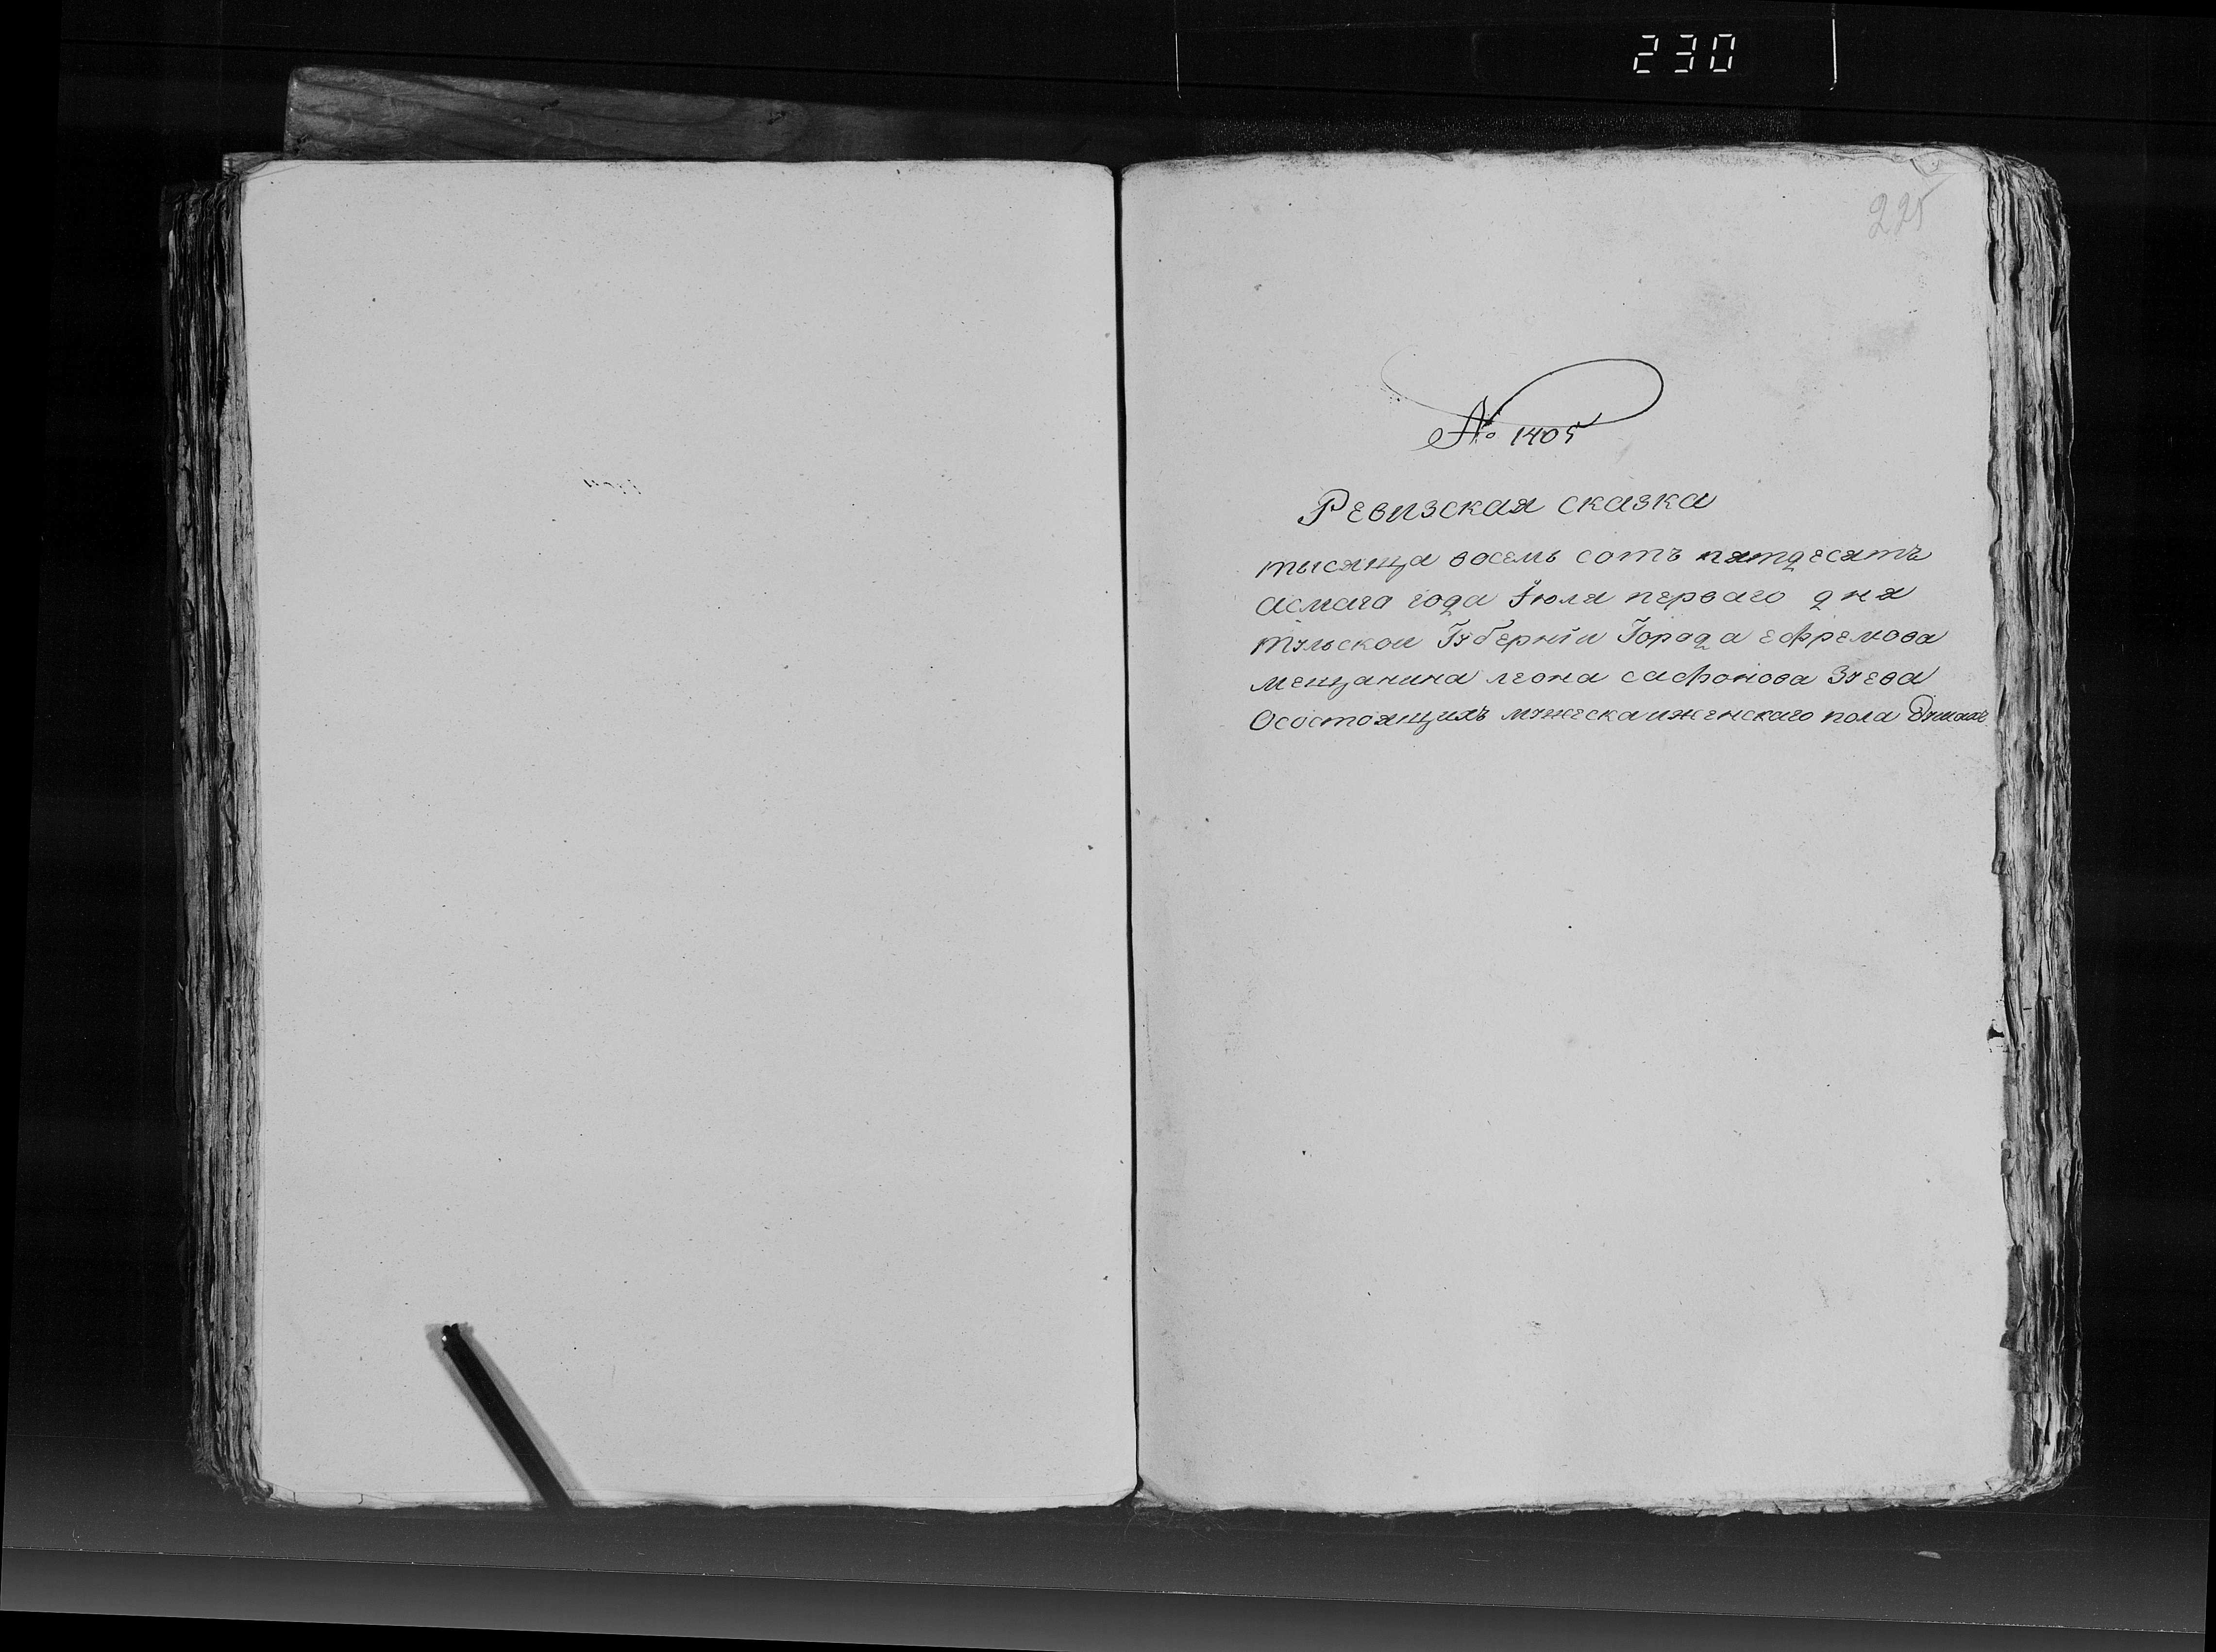 230
225
№ 1405
Ревизская сказка
тысяща восемь сотъ пятдесятъ
асмаго года Июля перваго дня
тульской Губерніи Города ефремова
мещанина леона сафонова Зуева
Осостоящихъ мужеска иженскаго пола Душахъ